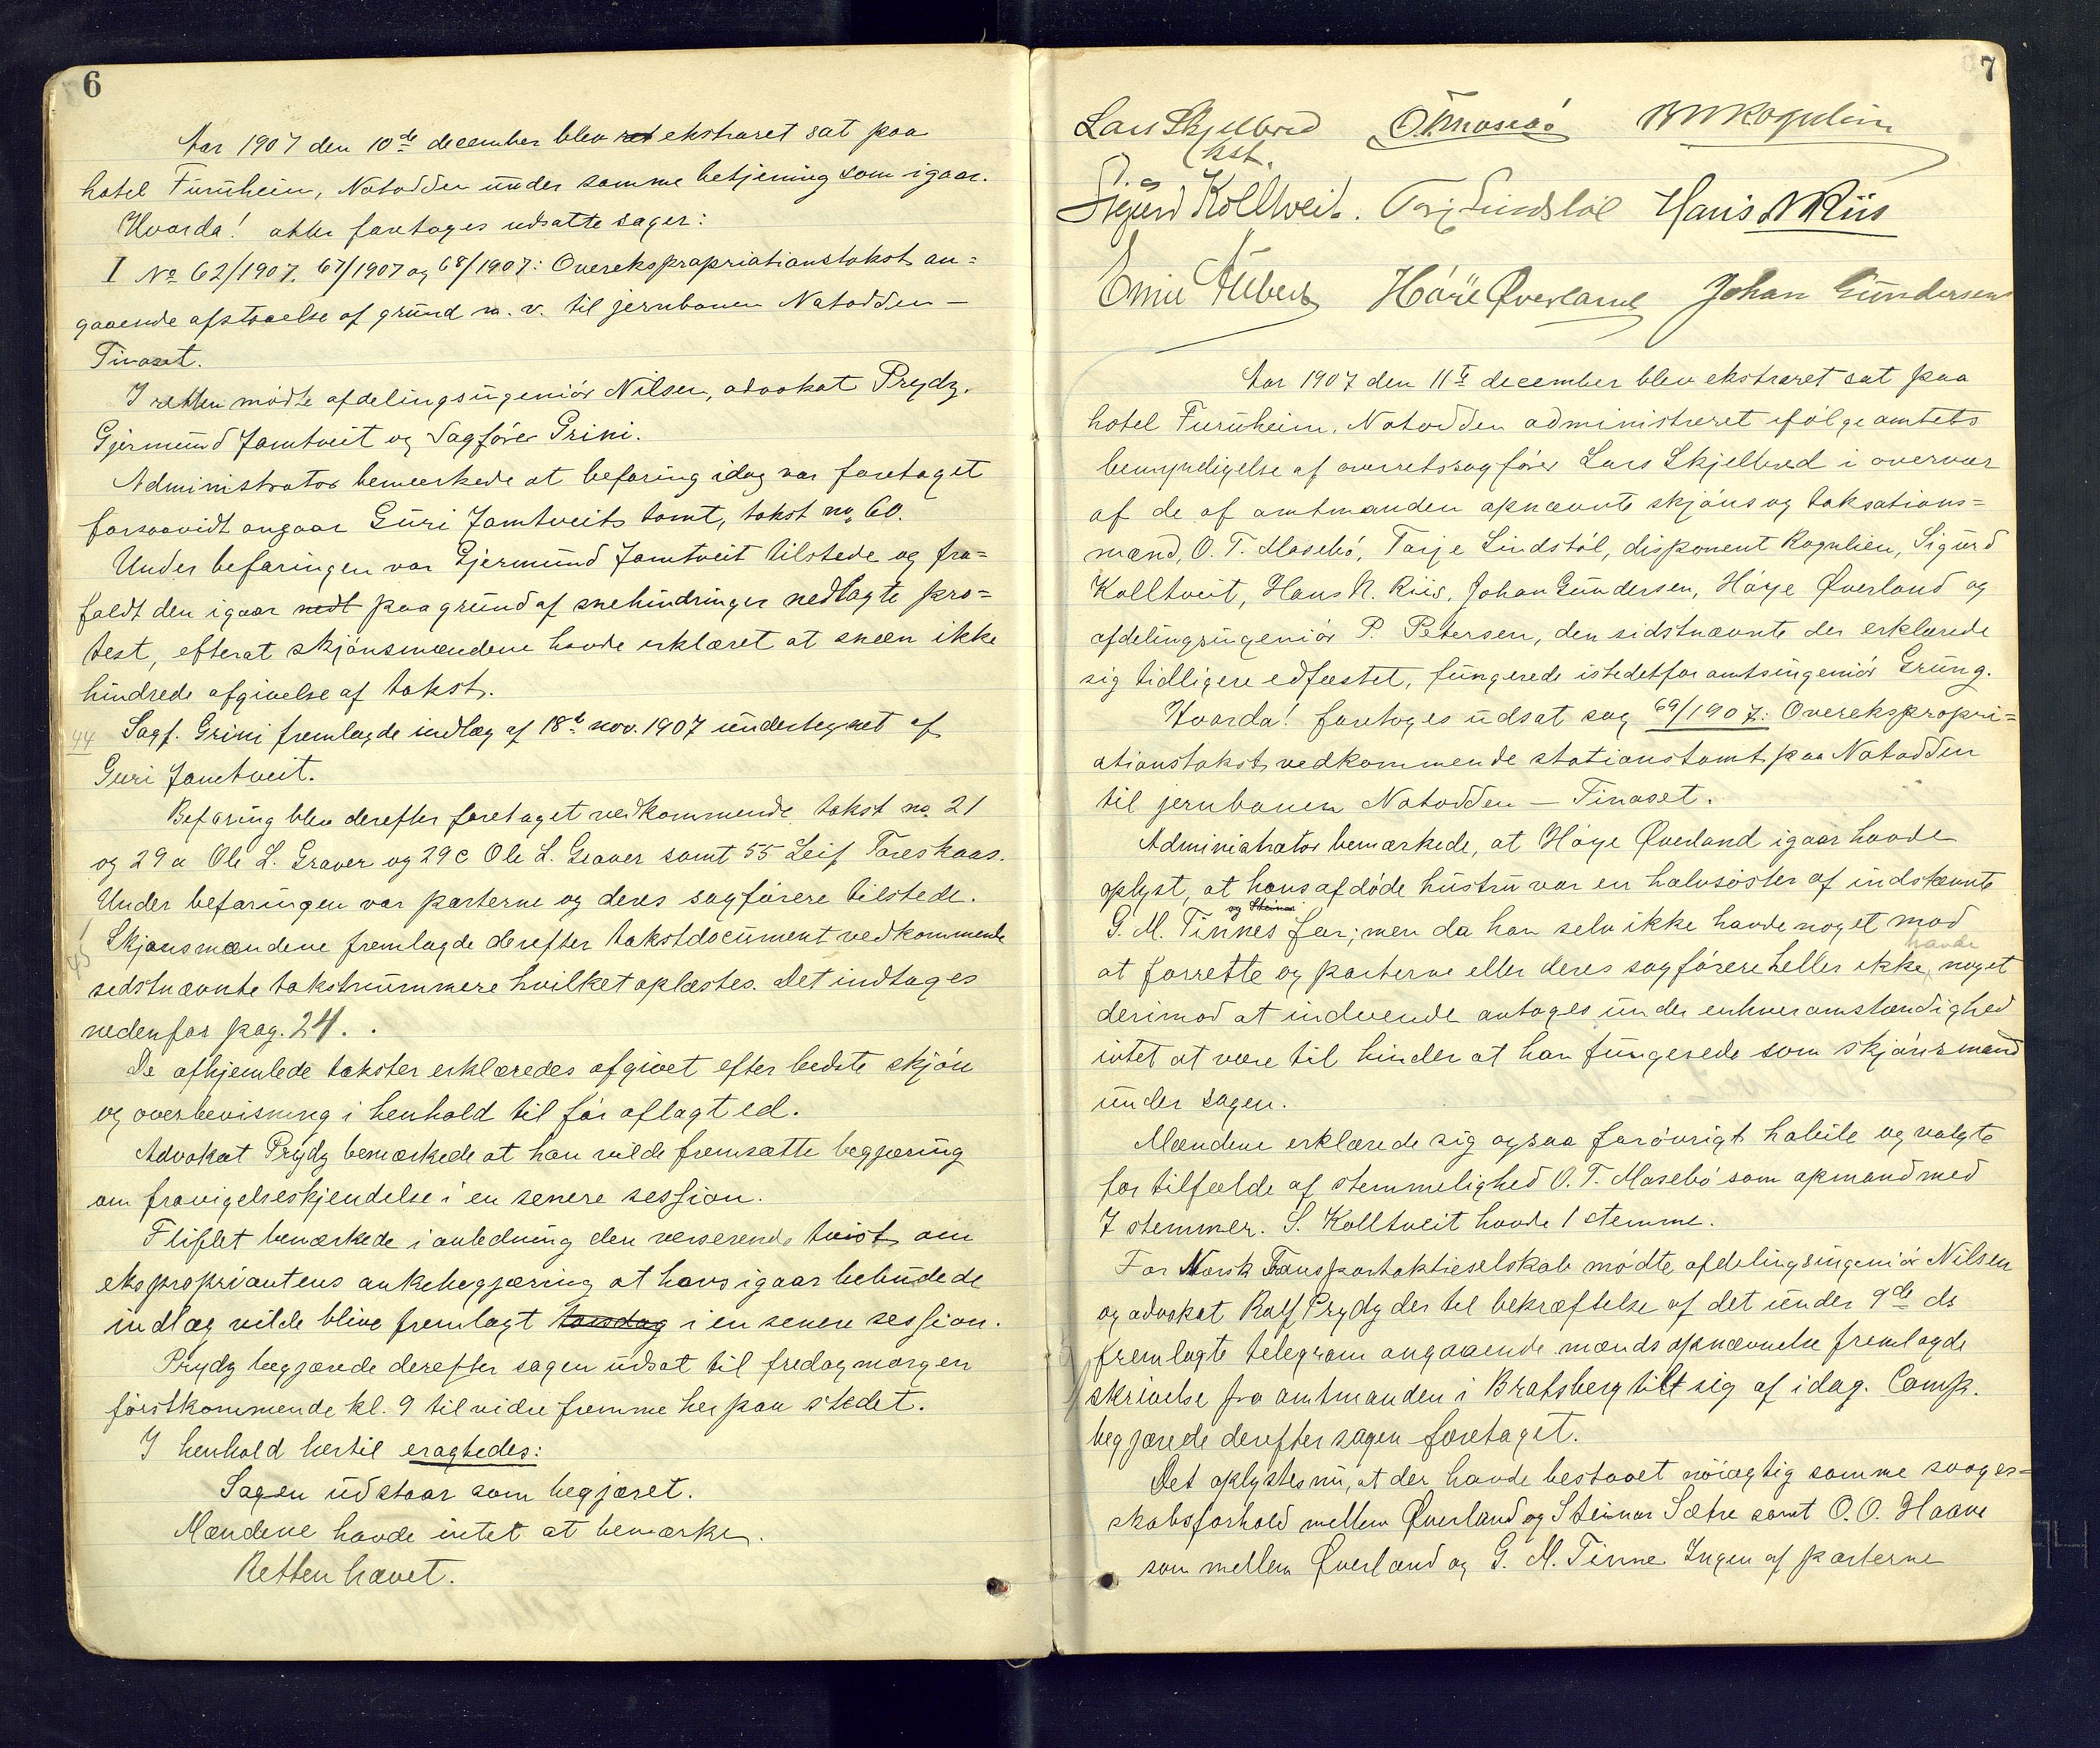 6
Aar 1907 den 10de december blev ret ekstraret sat paa
hotel Furuheim, Notodden under samme betjening som igaar.
Hvorda! atter foretoges udsatte sager:
I No 62/1907, 67/1907 og 68/1907: Overekspropriationstakst an=
gaaende afstaaelse af grund m. v. til jernbanen Notodden —
Tinoset.
I retten mødte afdelingsingeniør Nilsen, advokat Prydz,
Gjermund Jamtveit og Sagfører Grini.
Administrator bemærkede at befaring idag var foretaget
forsaavidt angaar Guri Jamtveits tomt, takst no. 60.
Under befaringen var Gjermund Jamtveit tilstede og fra=
faldt den igaar nedt paa grund af snehindringer nedlagte pro=
test, efterat skjønsmændene havde erklæret at sneen ikke
hindrede afgivelse af takst.
44 Sagf. Grini fremlagde indlæg af 18de nov. 1907 undertegnet af
Guri Jamtveit.
Befaring blev derefter foretaget vedkommende takst no. 21
og 29a Ole L. Graver og 29c Ole L. Graver samt 55 Leif Foreskaas.
Under befaringen var parterne og deres sagførere tilstede.
45 Skjønsmændene fremlagde derefter takstdocument vedkommende
sidstnævnte takstnummere hvilket oplæstes. Det indtages
nedenfor pag. 24.
De afhjemlede takster erklæredes afgivet efter bedste skjøn
og overbevisning i henhold til før aflagt ed.
Advokat Prydz bemærkede at han vilde fremsætte begjæring
om fravigelseskjendelse i en senere session.
Fliflet bemærkede i anledning den verserende tvist om
ekspropriantens ankebegjæring at hans igaar bebudede
indlæg vilde blive fremlagt torsdag i en senere session.
Prydz begjærede derefter sagen udsat til fredag morgen
førstkommende kl. 9 til vidre fremme her paa stedet.
I henhold hertil eragtedes:
Sagen udstaar som begjæret.
Mændene havde intet at bemærke.
Retten hævet.
7
Lars Skjelbred O.T. Mosebø Rogulien
kst.
Sigurd Kolltveit. Tarj Lindstøl Hans N Riis
Høie Øverland Johan Gundersen
Aar 1907 den 11te december blev ekstraret sat paa
hotel Furuheim, Notodden administreret ifølge amtets
bemyndigelse af overretssagfører Lars Skjelbred i overvær
af de af amtmanden opnævnte skjøns og taksations=
mænd, O. T. Mosebø, Tarje Lindstøl, disponent Rogulien, Sigurd
Kolltveit, Hans N. Riis, Johan Gundersen, Høye Øverland og
afdelingsingeniør P. Petersen, den sidstnævnte der erklærede
sig tidligere edfæstet, fungerede istedetfor amtsingeniør Grung.
Hvorda! foretoges udsat sag 69/1907: Overekspropri=
ationstakst vedkommende stationstomt paa Notodden
til jernbanen Notodden — Tinoset.
Administrator bemærkede, at Høye Øverland igaar havde
oplyst, at hans afdøde hustru var en halvsøster af indstevnte
og Steinar
G. M. Tinnes far; men da han selv ikke havde noget mod
havde
at forrette og parterne eller deres sagførere heller ikke noget
derimod at indvende antoges under enhver omstændighed
intet at være til hinder at han fungerede som skjønsmand
under sagen.
Mændene erklærede sig ogsaa forøvrigt habile og valgte
for tilfælde af stemmelighed O. T. Mosebø som opmand med
7 stemmer. S. Kolltveit havde 1 stemme.
For Norsk Transportaktieselskab mødte afdelingsingeniør Nilsen
og advokat Rolf Prydz der til bekræftelse af det under 9de ds
fremlagte telegram angaaende mænds opnævnelse fremlagde
skrivelse fra amtmanden i Bratsberg tilt sig af idag. Comp.
begjærede derefter sagen foretaget.
Det oplystes nu, at der havde bestaaet nøiagtig samme svoger=
skabsforhold mellem Øverland og Steinar Sætre samt O. O. Haave
som mellem Øverland og G. M. Tinne. Ingen af parterne